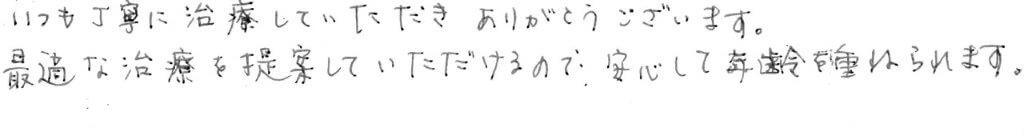 いつも丁寧に治療していただき ありがとうございます。
最適な治療を提案していただけるので、安心して年齢を重ねられます。